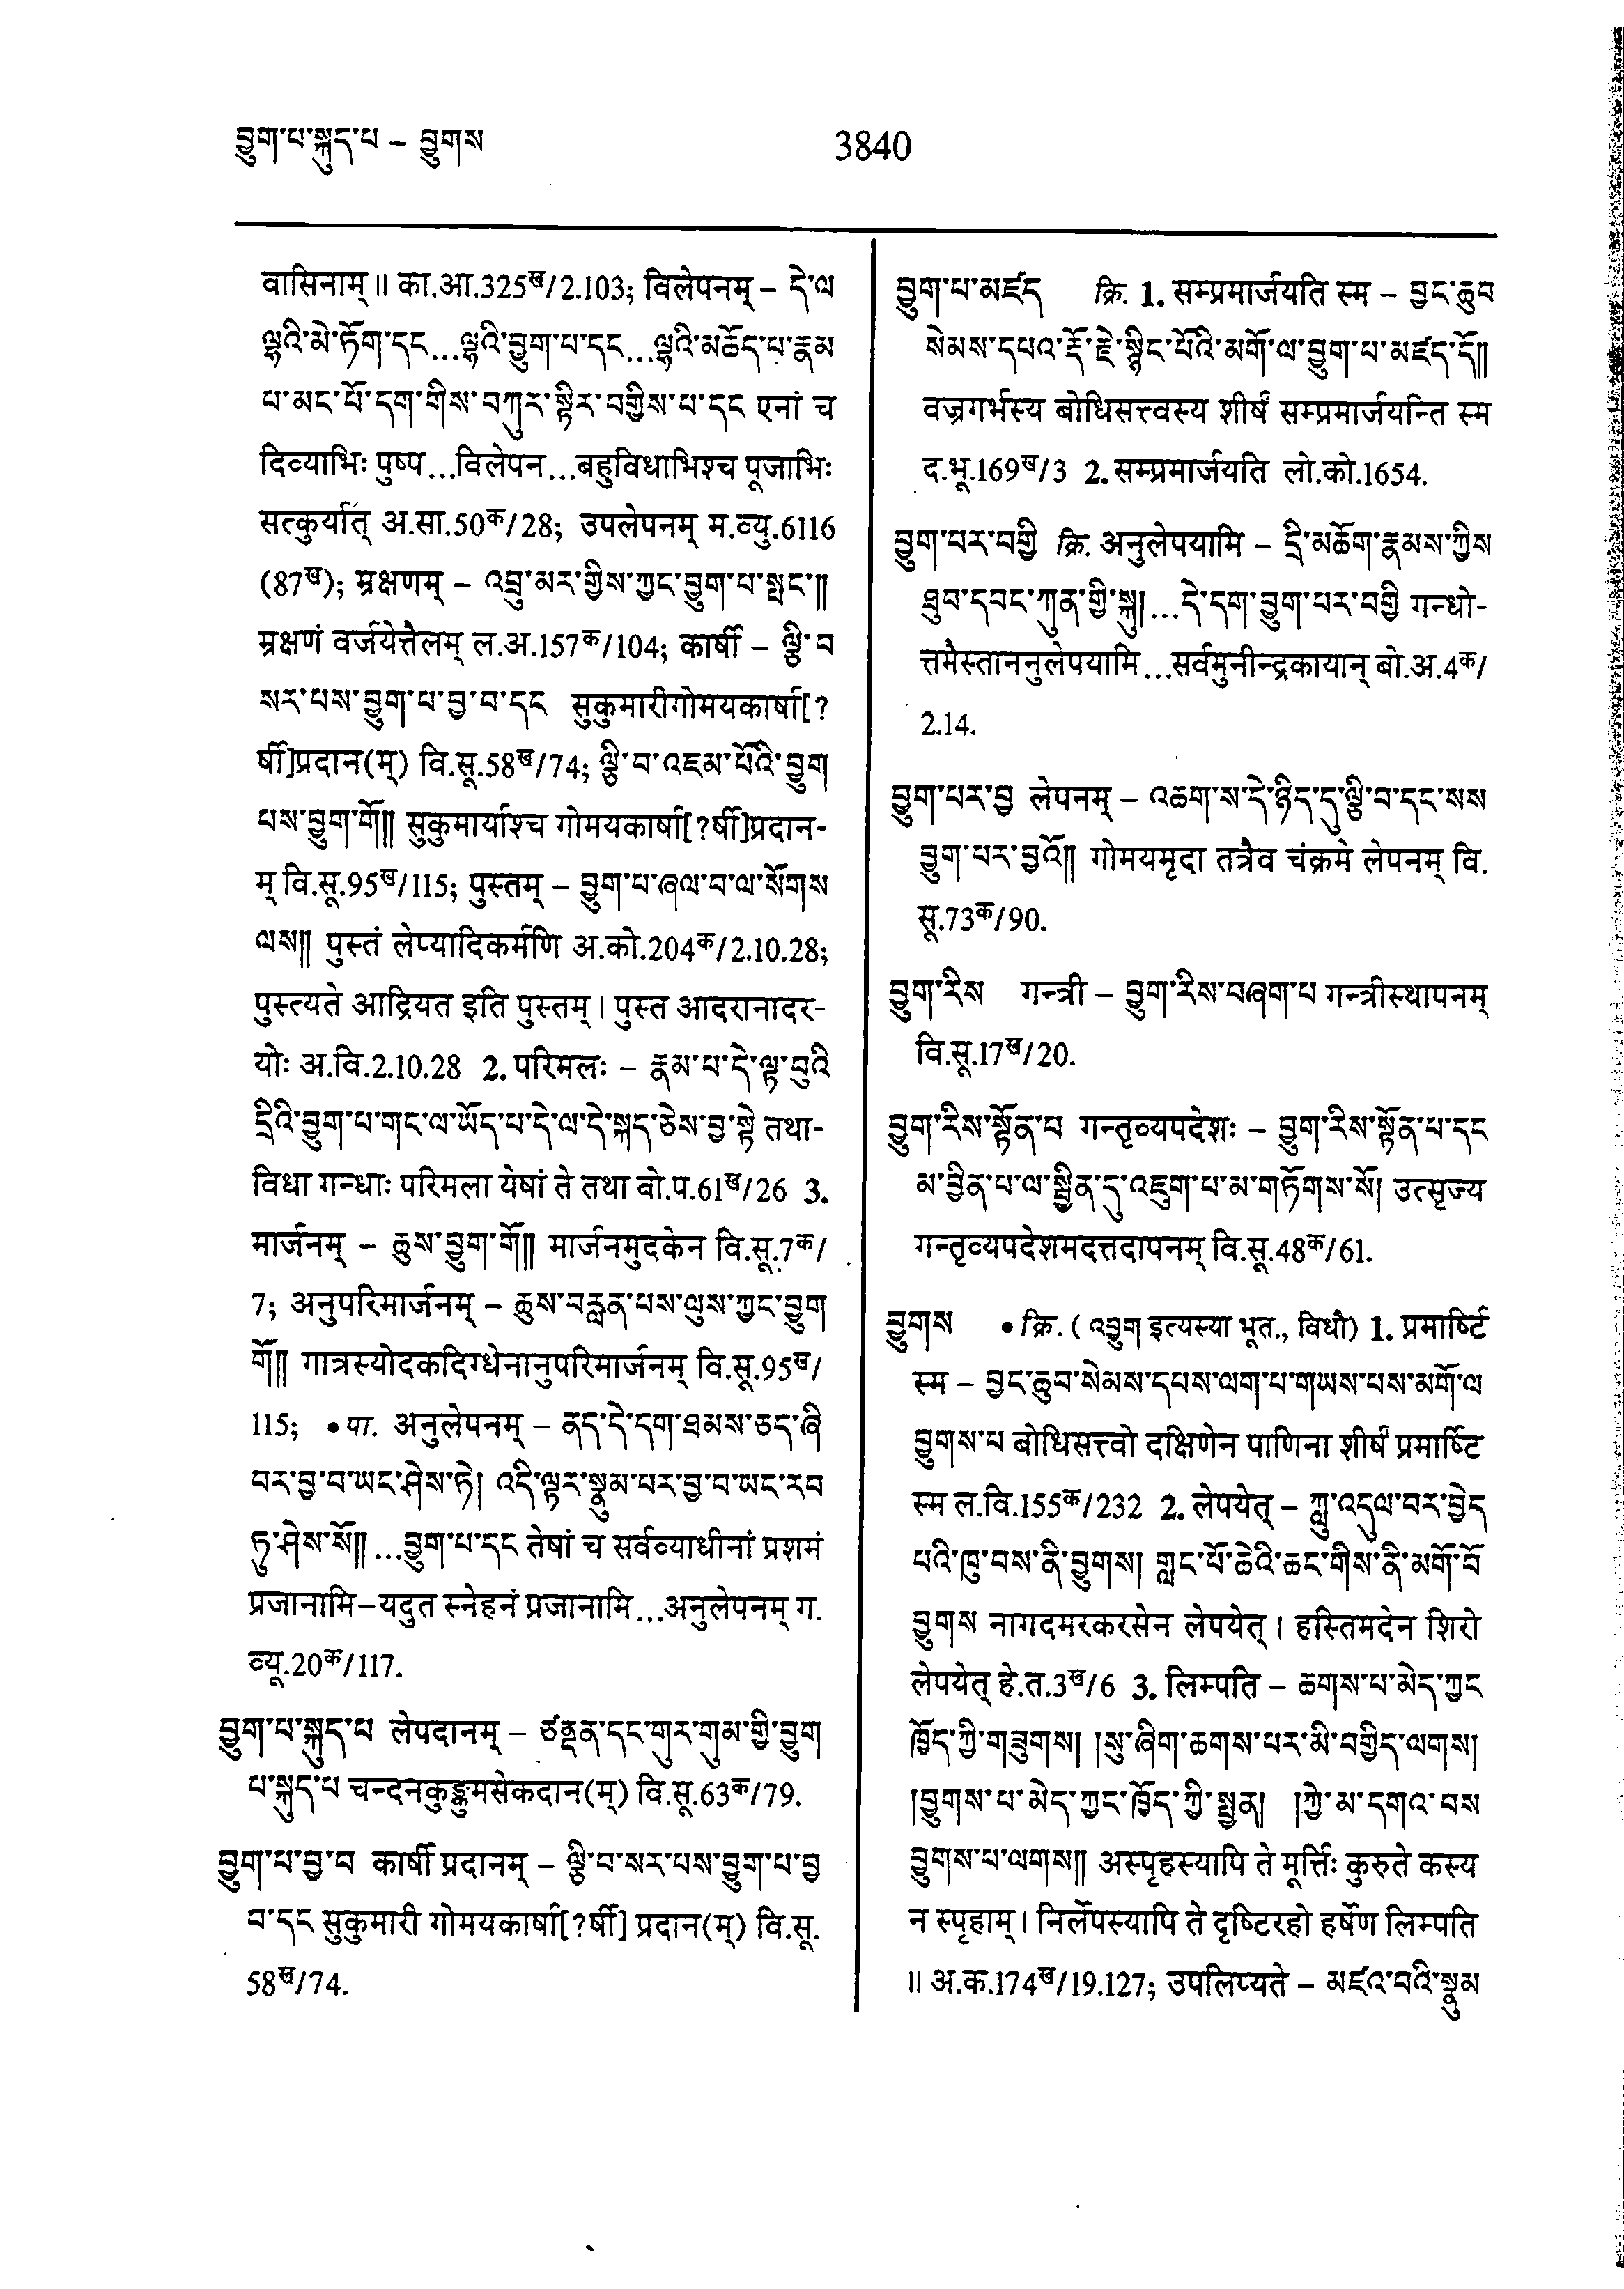 བྱུག་པ་སྐུད་པ – བྱུགས
3840
वासिनाम्॥ का.आ.325ख/2.103; विलेपनम् – དེ་ལ
ལྷའི་མེ་ཏོག་དང...ལྷའི་བྱུག་པ་དང...ལྷའི་མཆོད་པ་རྣམ
པ་མང་པོ་དག་གིས་བཀུར་སྟིར་བགྱིས་པ་དང एनां च
दिव्याभिः पुष्प...विलेपन...बहुविधाभिश्च पूजाभिः
सत्कुर्यात् अ.सा.50क/28; उपलेपनम् म.व्यु.6116
(87ख); म्रक्षणम् – འབྲུ་མར་གྱིས་ཀྱང་བྱུག་པ་སྤང་༎
म्रक्षणं वर्जयेत्तैलम् ल.अ.157क/104; कार्षी – ལྕི་བ
སར་པས་བྱུག་པ་བྱ་བ་དང सुकुमारीगोमयकार्षा[?
र्षी]प्रदान(म्) वि.सू.58ख/74; ལྕི་བ་འཇམ་པོའི་བྱུག
པས་བྱུག་གོ༎ सुकुमार्याश्च गोमयकार्षा[?र्षी]प्रदान-
म् वि.सू.95ख/115; पुस्तम् – བྱུག་པ་ཞལ་བ་ལ་སོགས
ལས༎ पुस्तं लेप्यादिकर्मणि अ.को.204क/2.10.28;
पुस्त्यते आद्रियत इति पुस्तम्। पुस्त आदरानादर-
योः अ.वि.2.10.28 2. परिमलः – རྣམ་པ་དེ་ལྟ་བུའི
དྲིའི་བྱུག་པ་གང་ལ་ཡོད་པ་དེ་ལ་དེ་སྐད་ཅེས་བྱ་སྟེ तथा-
विधा गन्धाः परिमला येषां ते तथा बो.प.61ख/26 3.
मार्जनम् – ཆུས་བྱུག་གོ༎ मार्जनमुदकेन वि.सू.7क/
7; अनुपरिमार्जनम् – ཆུས་བརླན་པས་ལུས་ཀྱང་བྱུག
གོ༎ गात्रस्योदकदिग्धेनानुपरिमार्जनम् वि.सू.95ख/
115; • पा. अनुलेपनम् – ནད་དེ་དག་ཐམས་ཅད་ཞི
བར་བྱ་བ་ཡང་ཤེས་ཏེ། འདི་ལྟར་སྣུམ་པར་བྱ་བ་ཡང་རབ
ཏུ་ཤེས་སོ༎ ...བྱུག་པ་དང तेषां च सर्वव्याधीनां प्रशमं
प्रजानामि–यदुत स्नेहनं प्रजानामि...अनुलेपनम् ग.
व्यू.20क/117.
བྱུག་པ་སྐུད་པ लेपदानम् – ཙནྡན་དང་གུར་གུམ་གྱི་བྱུག
པ་སྐུད་པ चन्दनकुङ्कुमसेकदान(म्) वि.सू.63क/79.
བྱུག་པ་བྱ་བ कार्षी प्रदानम् – ལྕི་བ་སར་པས་བྱུག་པ་བྱ
བ་དང सुकुमारी गोमयकार्षा[?र्षी] प्रदान(म्) वि.सू.
58ख/74.
བྱུག་པ་མཛད क्रि. 1. सम्प्रमार्जयति स्म – བྱང་ཆུབ
སེམས་དཔའ་རྡོ་རྗེ་སྙིང་པོའི་མགོ་ལ་བྱུག་པ་མཛད་དོ༎
वज्रगर्भस्य बोधिसत्त्वस्य शीर्षं सम्प्रमार्जयन्ति स्म
द.भू.169ख/3 2. सम्प्रमार्जयति लो.को.1654.
བྱུག་པར་བགྱི क्रि. अनुलेपयामि – དྲི་མཆོག་རྣམས་ཀྱིས
ཐུབ་དབང་ཀུན་གྱི་སྐུ། ...དེ་དག་བྱུག་པར་བགྱི गन्धो-
त्तमैस्ताननुलेपयामि...सर्वमुनीन्द्रकायान् बो.अ.4क/
2.14.
བྱུག་པར་བྱ लेपनम् – འཆག་ས་དེ་ཉིད་དུ་ལྕི་བ་དང་སས
བྱུག་པར་བྱའོ༎ गोमयमृदा तत्रैव चंक्रमे लेपनम् वि.
सू.73क/90.
བྱུག་རིས गन्त्री – བྱུག་རིས་བཞག་པ गन्त्रीस्थापनम्
वि.सू.17ख/20.
བྱུག་རིས་སྟོན་པ गन्तृव्यपदेशः – བྱུག་རིས་སྟོན་པ་དང
མ་བྱིན་པ་ལ་སྦྱིན་དུ་འཇུག་པ་མ་གཏོགས་སོ། उत्सृज्य
गन्तृव्यपदेशमदत्तदापनम् वि.सू.48क/61.
བྱུགས • क्रि. (འབྱུག इत्यस्या भूत., विधौ) 1. प्रमार्ष्टि
स्म – བྱང་ཆུབ་སེམས་དཔས་ལག་པ་གཡས་པས་མགོ་ལ
བྱུགས་པ बोधिसत्त्वो दक्षिणेन पाणिना शीर्षं प्रमार्ष्टि
स्म ल.वि.155क/232 2. लेपयेत् – ཀླུ་འདུལ་བར་བྱེད
པའི་ཁུ་བས་ནི་བྱུགས། གླང་པོ་ཆེའི་ཆང་གིས་ནི་མགོ་བོ
བྱུགས नागदमरकरसेन लेपयेत्। हस्तिमदेन शिरो
लेपयेत् हे.त.3ख/6 3. लिम्पति – ཆགས་པ་མེད་ཀྱང
ཁྱོད་ཀྱི་གཟུགས། །སུ་ཞིག་ཆགས་པར་མི་བགྱིད་ལགས།
།བྱུགས་པ་མེད་ཀྱང་ཁྱོད་ཀྱི་སྤྱན། །ཀྱེ་མ་དགའ་བས
བྱུགས་པ་ལགས༎ अस्पृहस्यापि ते मूर्त्तिः कुरुते कस्य
न स्पृहाम्। निर्लेपस्यापि ते दृष्टिरहो हर्षेण लिम्पति
॥ अ.क.174ख/19.127; उपलिप्यते – མཛའ་བའི་སྣུམ